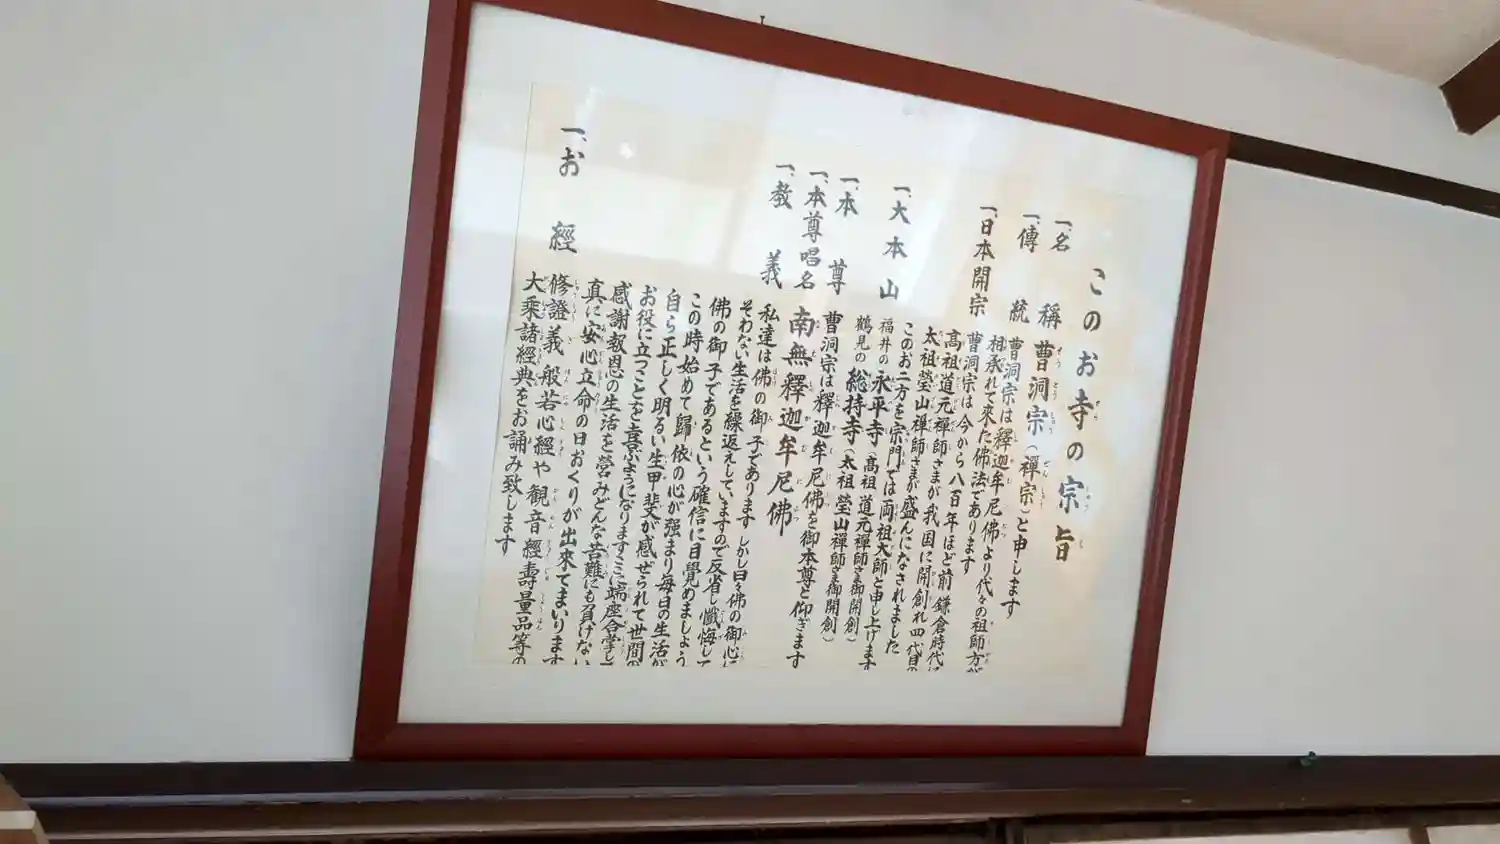 このお寺の宗旨
一、名稱 曹洞宗(禪宗)と申します
一、傳統 曹洞宗は釋迦牟尼佛より代々の祖師方が
相承れて来た佛法であります
一、日本開宗 曹洞宗は今から八百年ほど前鎌倉時代に
高祖道元禪師さまが我国に開創れ四代目の
太祖瑩山禪師さまが盛んになされました
このお二方を宗門では両祖大師と申し上げます
一、大本山 福井の永平寺(高祖道元禪師さま御開創)
鶴見の總持寺(太祖瑩山禪師さま御開創)
一、本尊 曹洞宗は釋迦牟尼佛を御本尊と仰ぎます
一、本尊唱名 南無釋迦牟尼佛
一、教義 私達は佛の御子であります しかし日々佛の御心に
そわない生活を繰返えしていますので反省し懺悔して
佛の御子であるという確信に目覺めましょう
この時始めて歸依の心が強まり毎日の生活が
自ら正しく明るい生甲斐が感ぜられて世間の
お役に立つことを喜ぶようになります こゝに端座合掌して
感謝報恩の生活を営みどんな苦難にも負けない
真に安心立命の日おくりが出來てまいります
一、お經 修證義般若心經や観音經壽量品等の
大乘諸經典をお誦み致します